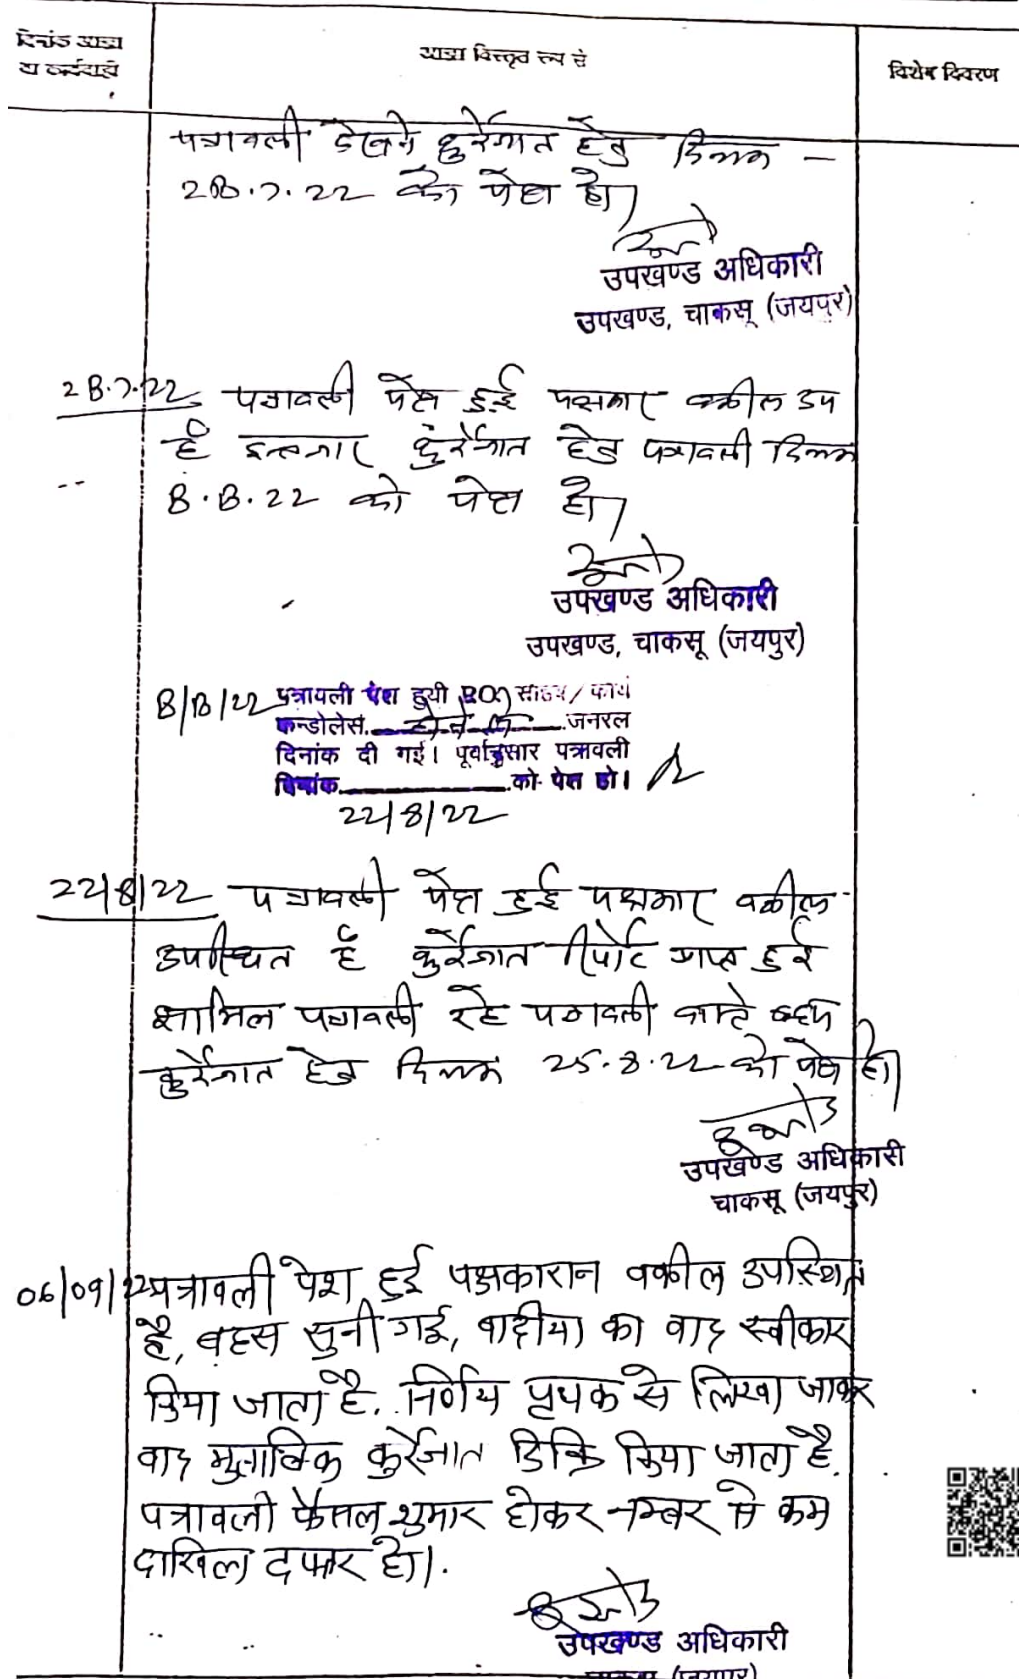 दिनांक आज्ञा
या कार्यवाही
आज्ञा विस्तृत रूप से
विशेष विवरण
पत्रावली देखने कुर्रेजात हेतु दिनांक -
28.7.22 को पेश हो।
उपखण्ड अधिकारी
उपखण्ड, चाकसू (जयपुर)
28.7.22 पत्रावली पेश हुई पक्षकार वकील उप
है इन्तजार कुर्रेजात हेतु पत्रावली दिनांक
8.8.22 को पेश हो।
उपखण्ड अधिकारी
उपखण्ड, चाकसू (जयपुर)
8/8/22 पत्रावली पेश हुयी
कन्डोलेंस जनरल
दिनांक दी गई। पूर्वानुसार पत्रावली
दिनांक को पेश हो।
22/8/22
22/8/22 पत्रावली पेश हुई पक्षकार वकील
उपस्थित है कुर्रेजात रिपोर्ट प्राप्त हुई
शामिल पत्रावली रहे पत्रावली वास्ते बहस
कुर्रेजात हेतु दिनांक 25.8.22 को पेश हो।
उपखण्ड अधिकारी
चाकसू (जयपुर)
06/09/22 पत्रावली पेश हुई पक्षकारान वकील उपस्थित
है, बहस सुनी गई, वादीया का वाद स्वीकार
किया जाता है. निर्णय पृथक से लिखा जाकर
वाद मुताबिक कुर्रेजात डिक्रि किया जाता है.
पत्रावली फैसल शुमार होकर नम्बर से कम
दाखिल दफ्तर हो।.
उपखण्ड अधिकारी
चाकसू (जयपुर)